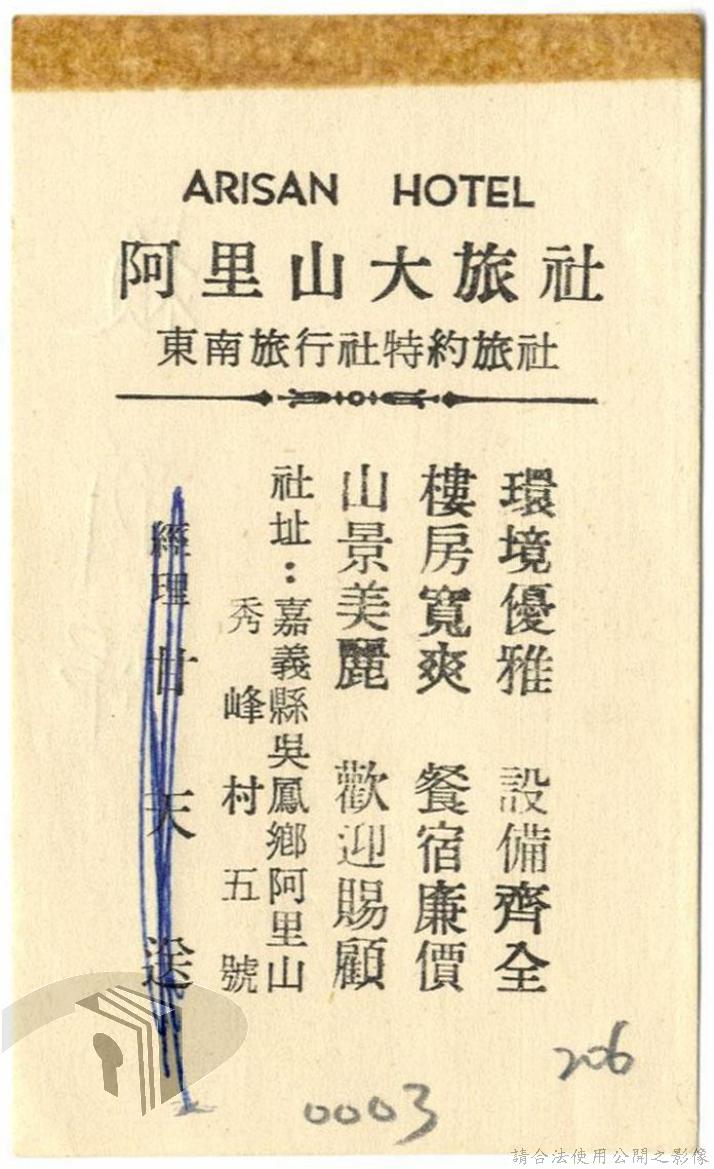 ARISAN HOTEL
阿里山大旅社
東南旅行社特約旅社
環境優雅 設備齊全
樓房寬爽 餐宿廉價
山景美麗 歡迎賜顧
社址：嘉義縣吳鳳鄉阿里山
秀峰村五號
經理 甘天送
206
0003
請合法使用公開之影像